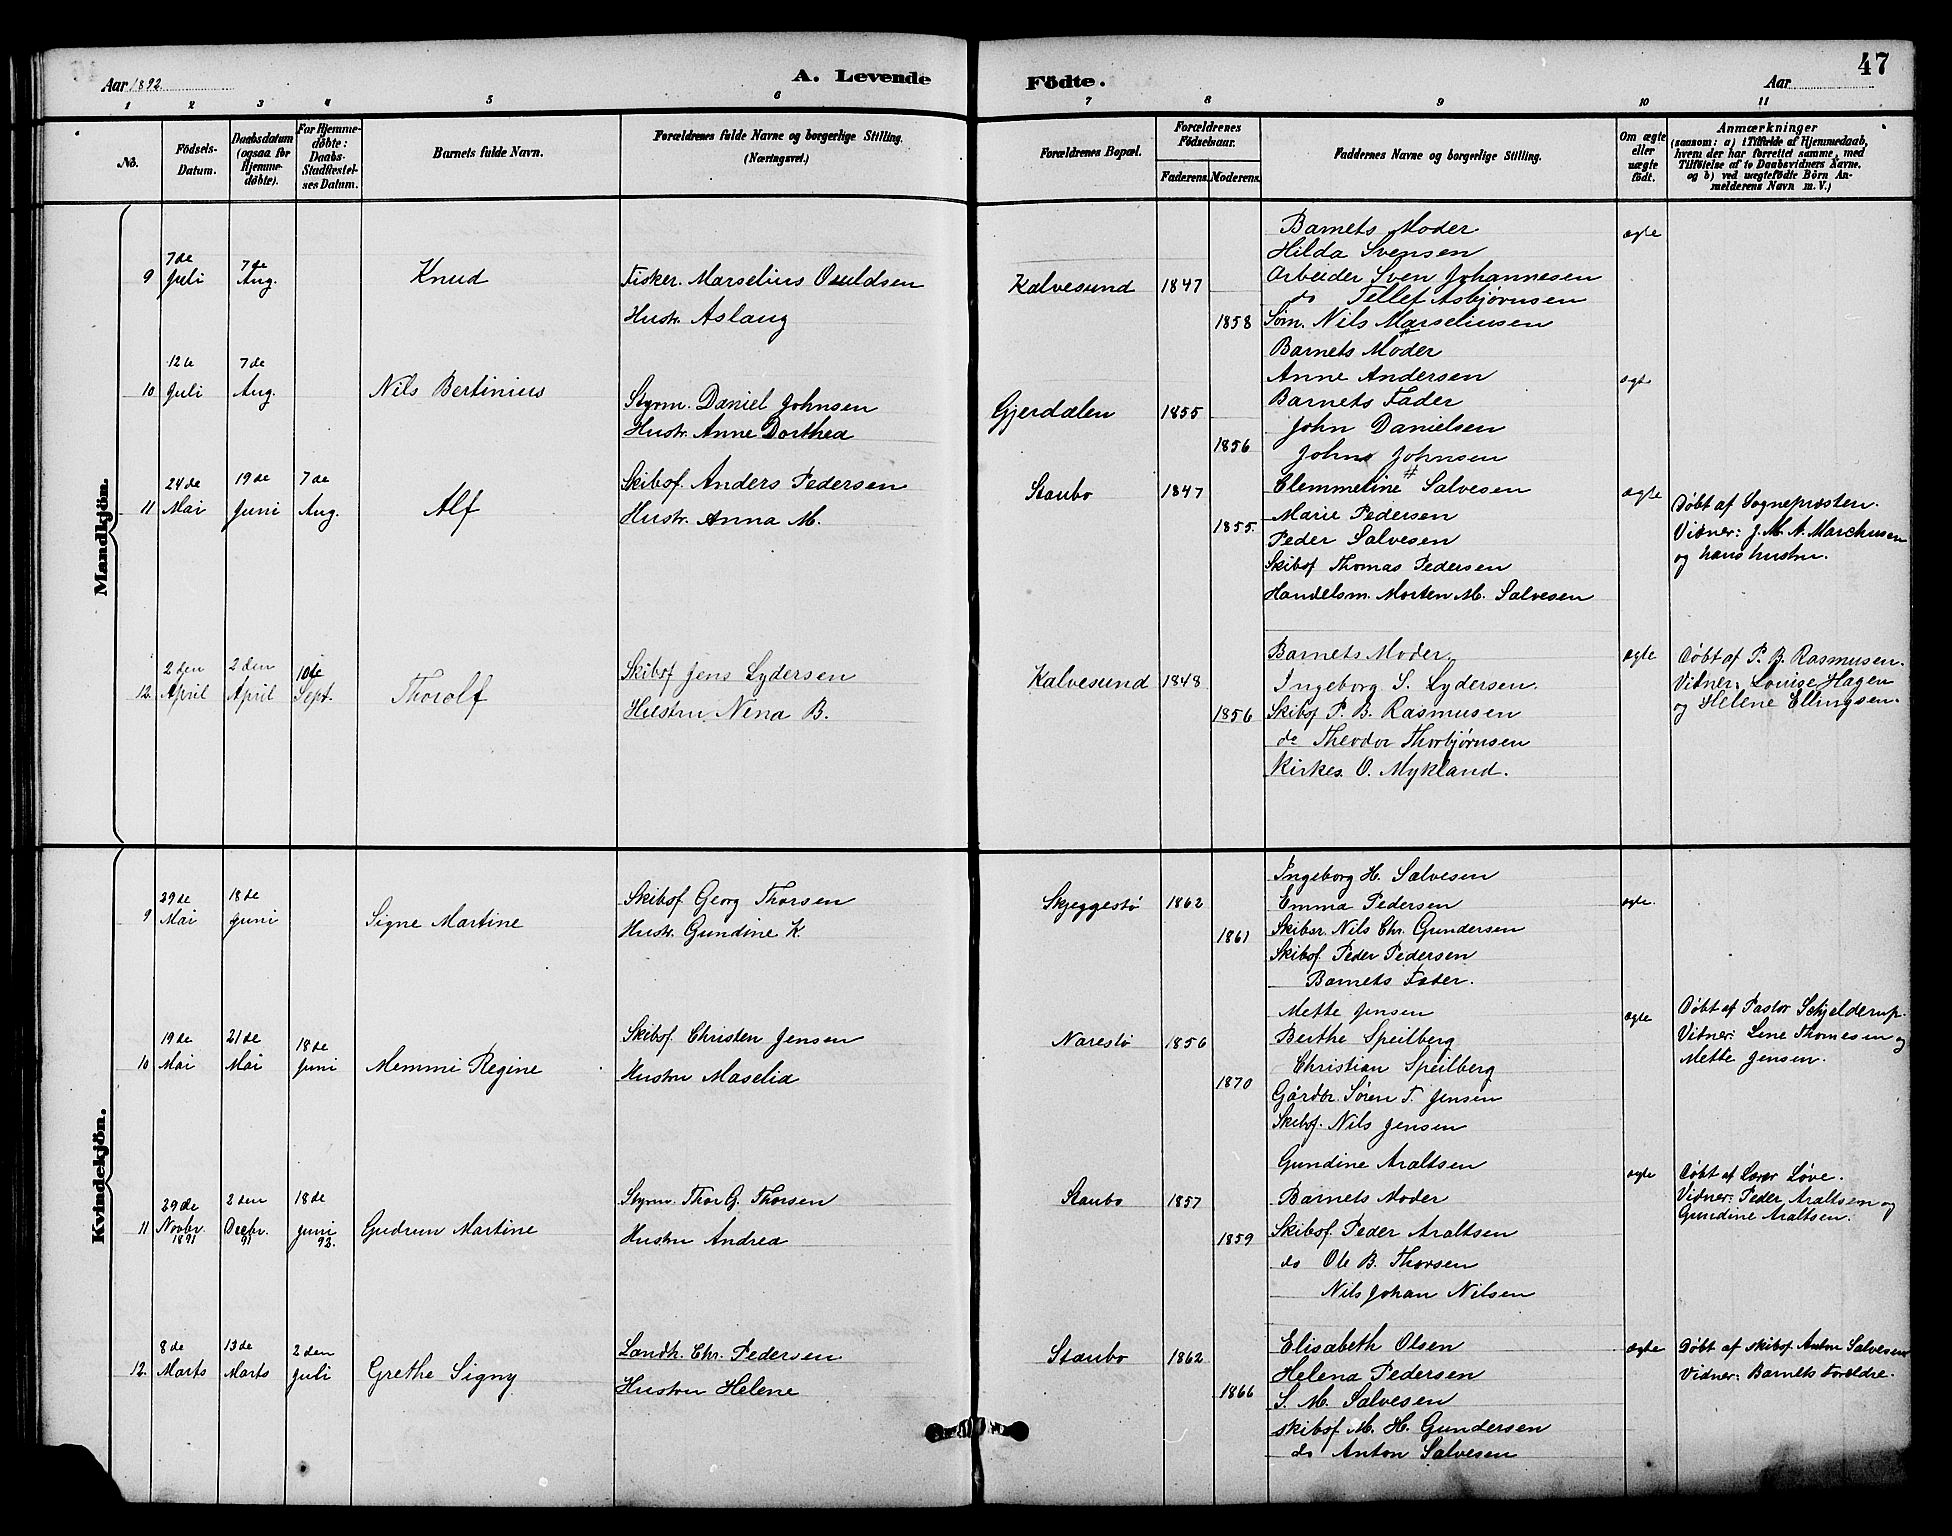 Aar 1892
A. Levende
Födte.
Aar
47
1 2 3 4 5 6 7 8 9 10 11
No.
Födsels-
Datum.
Daabsdatum
(ogsaa for
Hjemme-
döbte).
For Hjemme-
döbte:
Daabs-
Stadfæstel-
ses Datum.
Barnets fulde Navn.
Forældrenes fulde Navne og borgerlige Stilling.
(Næringsvei.)
Forældrenes Bopæl.
Forældrenes
Födselsaar.
Faderens.
Moderens.
Faddernes Navne og borgerlige Stilling.
Om ægte
eller
uægte
födt.
Anmærkninger
(saasom: a) i Tilfælde af Hjemmedaab,
hvem der har forrettet samme, med
Tilföielse af to Daabsvidners Navne,
og b) ved uægtefödte Börn An-
melderens Navn m. V.)
Mandkjön.
9
7de
Juli
7de
Aug.
Knud
Fisker. Marselius Osuldsen
Hustr. Aslaug
Kalvesund
1847
1858
Barnets Moder
Hilda Svensen
Arbeider Sven Johannesen
do Tellef Asbjørnsen
Søm. Nils Marseliusen
ægte
10
12te
Juli
7de
Aug.
Nils Bertinius
Styrm. Daniel Johnsen
Hustr. Anne Dorthea
Gjerdalen
1855
1856
Barnets Moder
Anne Andersen
Barnets Fader
John Danielsen
Johns Johnsen
ægte
11
24de
Mai
19de
Juni
7de
Aug.
Alf
Skibsf. Anders Pedersen
Hustr. Anna M.
Staubo
1847
1855
Clemmetine Salvesen
Marie Pedersen
Peder Salvesen
Skibsf Thomas Pedersen
Handelsm. Morten M. Salvesen
ægte
Døbt af Sognepræsten.
Vidner: J. M. A. Marchusen
og hans hustru.
12.
2den
April
2den
April
10de
Sept.
Thorolf
Skibsf Jens Lydersen
Hustru Nena B.
Kalvesund
1848
1856
Barnets Moder
Ingeborg S. Lydersen.
Skibsf P. B. Rasmusen
do Theodor Thorbjørnsen
Kirkes. O. Mykland.
ægte
Døbt af P. B. Rasmusen.
Vidner: Louise Hagen
og Helene Ellingsen.
Kvindekjön.
9
29de
Mai
18de
Juni
Signe Martine
Skibsf Georg Thorsen
Hustr. Gundine K.
Skjeggestø
1862
1861
Ingeborg H. Salvesen
Emma Pedersen
Skibsr. Nils Chr. Gundersen
Skibsf. Peder Pedersen
Barnets Fader.
ægte.
10
19de
Mai
21de
Mai
18de
Juni
Memmi Regine
Skibsf. Christen Jensen
Hustru Maselia
Narestø
1856
1870
Mette Jensen
Berthe Speilberg
Christian Speilberg
Gårdbr. Søren T. Jensen
Skibsf. Nils Jensen
ægte
Døbt af Pastor Schjelderup.
Vidner: Line Thomesen og
Mette Jensen.
11
29de
Novbr.
1891
2den
Decbr.
91
18de
Juni
92.
Gudrun Martine
Styrm. Thor G. Thorsen
Hustru Andrea
Staubo
1857
1859
Gundine Araltsen
Barnets Moder
Skibsf. Peder Araltsen
do Ole B. Thorsen
Nils Johan Nilsen
ægte
Døbt af Lærer Løve.
Vidner: Peder Araltsen og
Gundine Araltsen.
12.
8de
Marts
13de
Marts
2den
Juli
Grethe Signy
Landh. Chr. Pedersen
Hustru Helene
Staubo
1862
1866
Elisabeth Olsen
Helena Pedersen
S. M. Salvesen
skibsf M. H. Gundersen
do Anton Salvesen
ægte
Døbt af skibsf. Anton Salvesen
Vidner: Barnets Forældre.